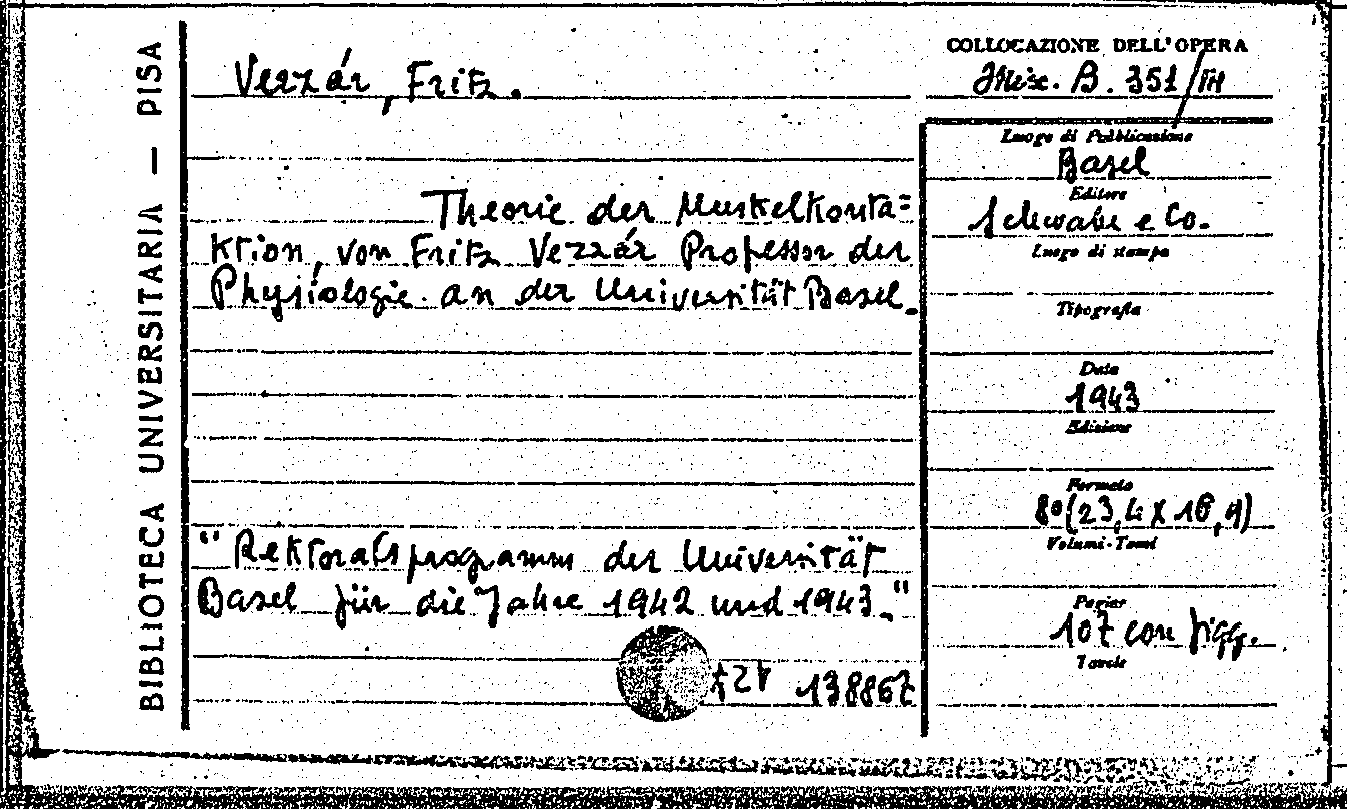 BIBLIOTECA UNIVERSITARIA — PISA
Vezzár, Fritz.
Theorie der Muskelkonta=
ktion, von Fritz Vezzár Professor der
Physiologie an der Universität Basel.
"Rektoratsprogramm der Universität
Basel für die Jahre 1942 und 1943."
138867
COLLOCAZIONE DELL'OPERA
Misc. B. 351/
Luogo di Pubblicazione
Basel
Editore
Schwabe e Co.
Luogo di stampa
Tipografia
Data
1943
Edizione
Formato
8°(23,4 x 16,4)
Volumi-Tomi
Pagine
107 con figg.
Tavole